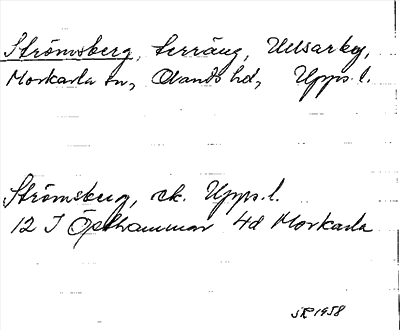 Strömsberg, terräng, Ullsarby,
Morkarla sn, Olands hd, Upps. l.
Strömsberg, ek. Upps. l.
12 I Östhammar 4d Morkarla
1958